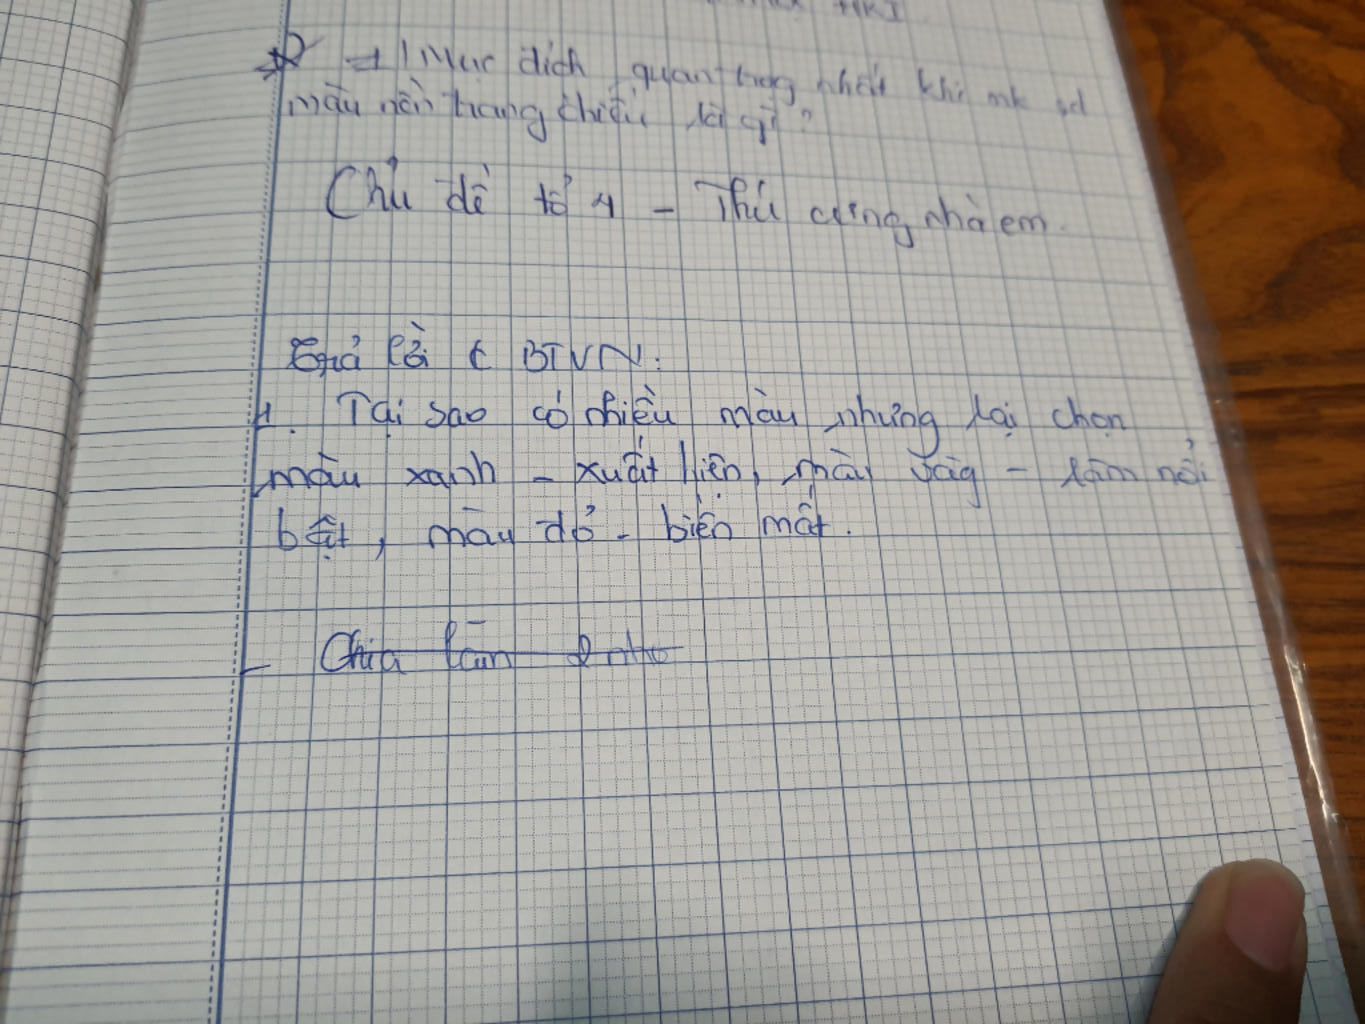 HKI
1 Mục đích quan trọng nhất khi mk sd
màu nền trang chiếu là gì?
Chủ đề tổ 4 - Thú cưng nhà em.
lời c BTVN:
1. Tại sao có nhiều màu nhưng lại chọn
màu xanh - xuất hiện, màu vàg - làm nổi
bật, màu đỏ - biến mất.
- Chia làm